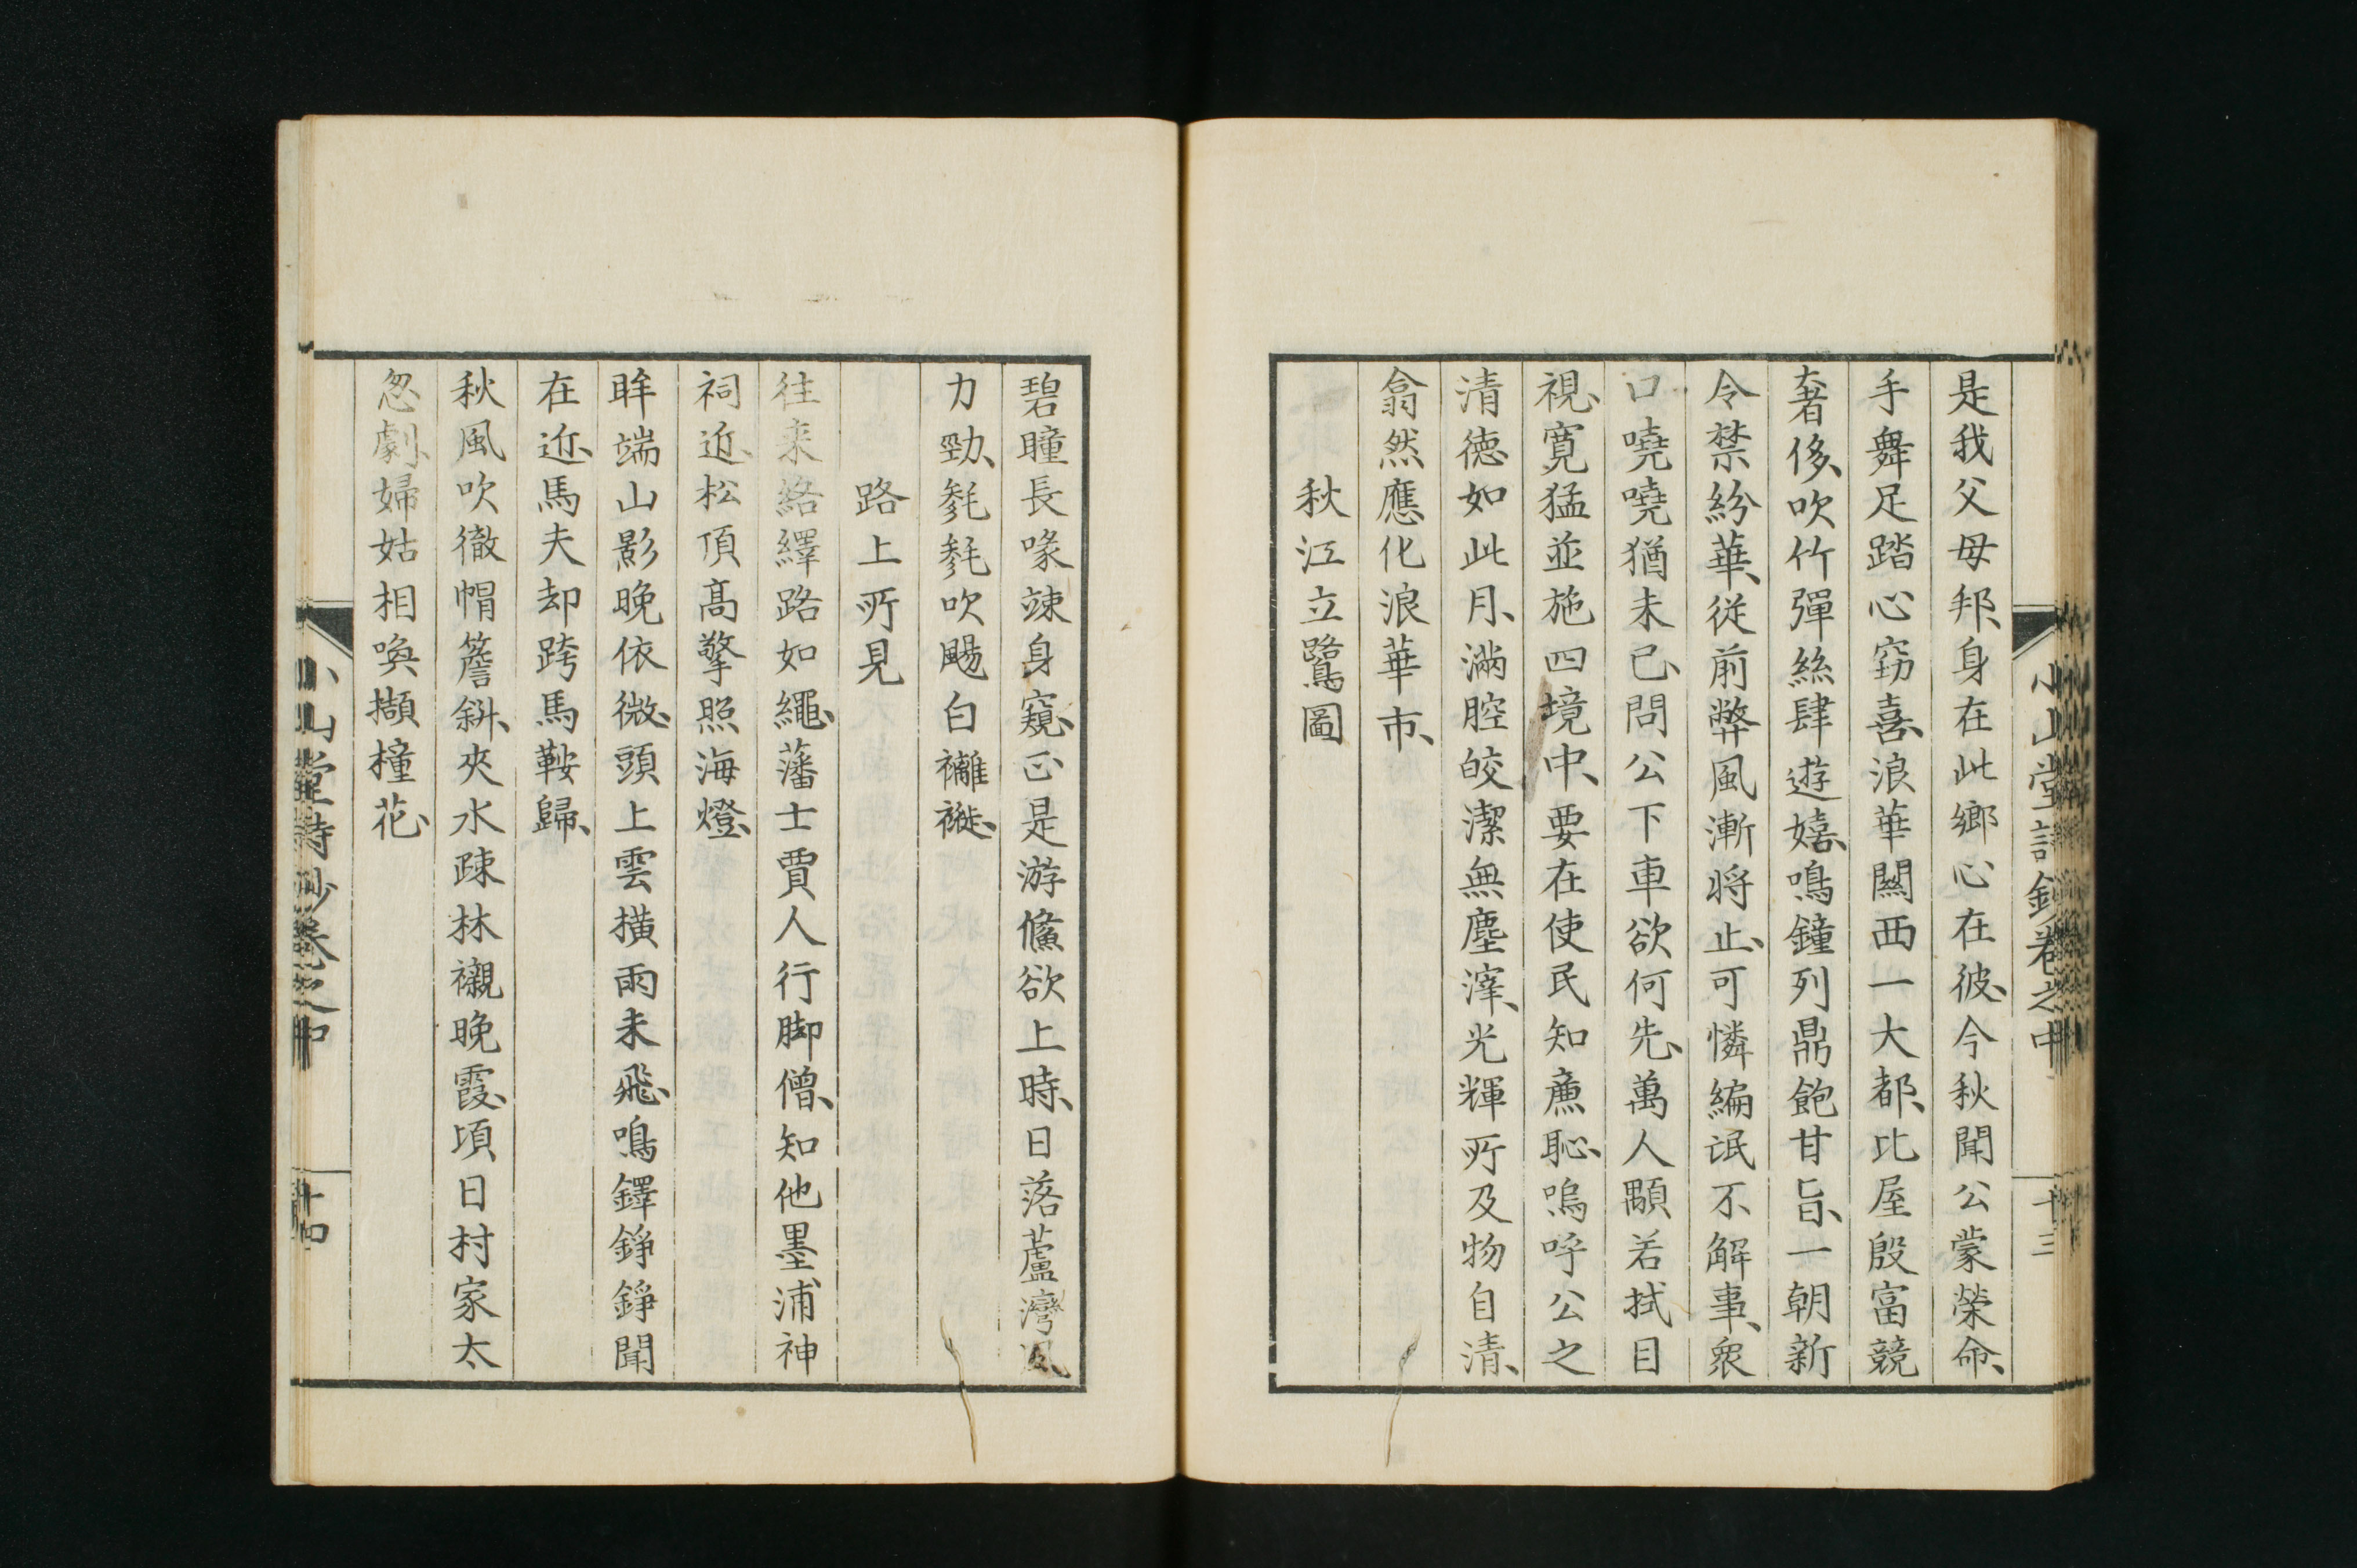 小山堂詩鈔卷之中
十三
是我父母邦、身在此鄉心在彼、今秋聞公蒙榮命、
手舞足踏心竊喜、浪華關西一大都、比屋殷富競
奢侈、吹竹彈絲肆遊嬉、鳴鐘列鼎飽甘旨、一朝新
令禁紛華、從前弊風漸将止、可憐編氓不解事、衆
口嘵嘵猶未已、問公下車欲何先、萬人顒若拭目
視、寬猛並施四境中、要在使民知廉恥、嗚呼公之
清德如此月、滿腔皎潔無塵滓、光輝所及物自清、
翕然應化浪華市、
秋江立鷺圖
碧瞳長喙竦身窺、正是游鯈欲上時、日落蘆灣風
力勁、毿毿吹颺白襹褷、
路上所見
往来絡繹路如繩、藩士賈人行脚僧、知他墨浦神
祠近、松頂髙擎照海燈、
眸端山影晚依微、頭上雲横雨未飛、鳴鐸錚錚聞
在近、馬夫却跨馬鞍歸、
秋風吹徹帽簷斜、夾水疎林襯晚霞、頃日村家太
怱劇、婦姑相喚擷橦花、
小山堂詩鈔卷之中
十四